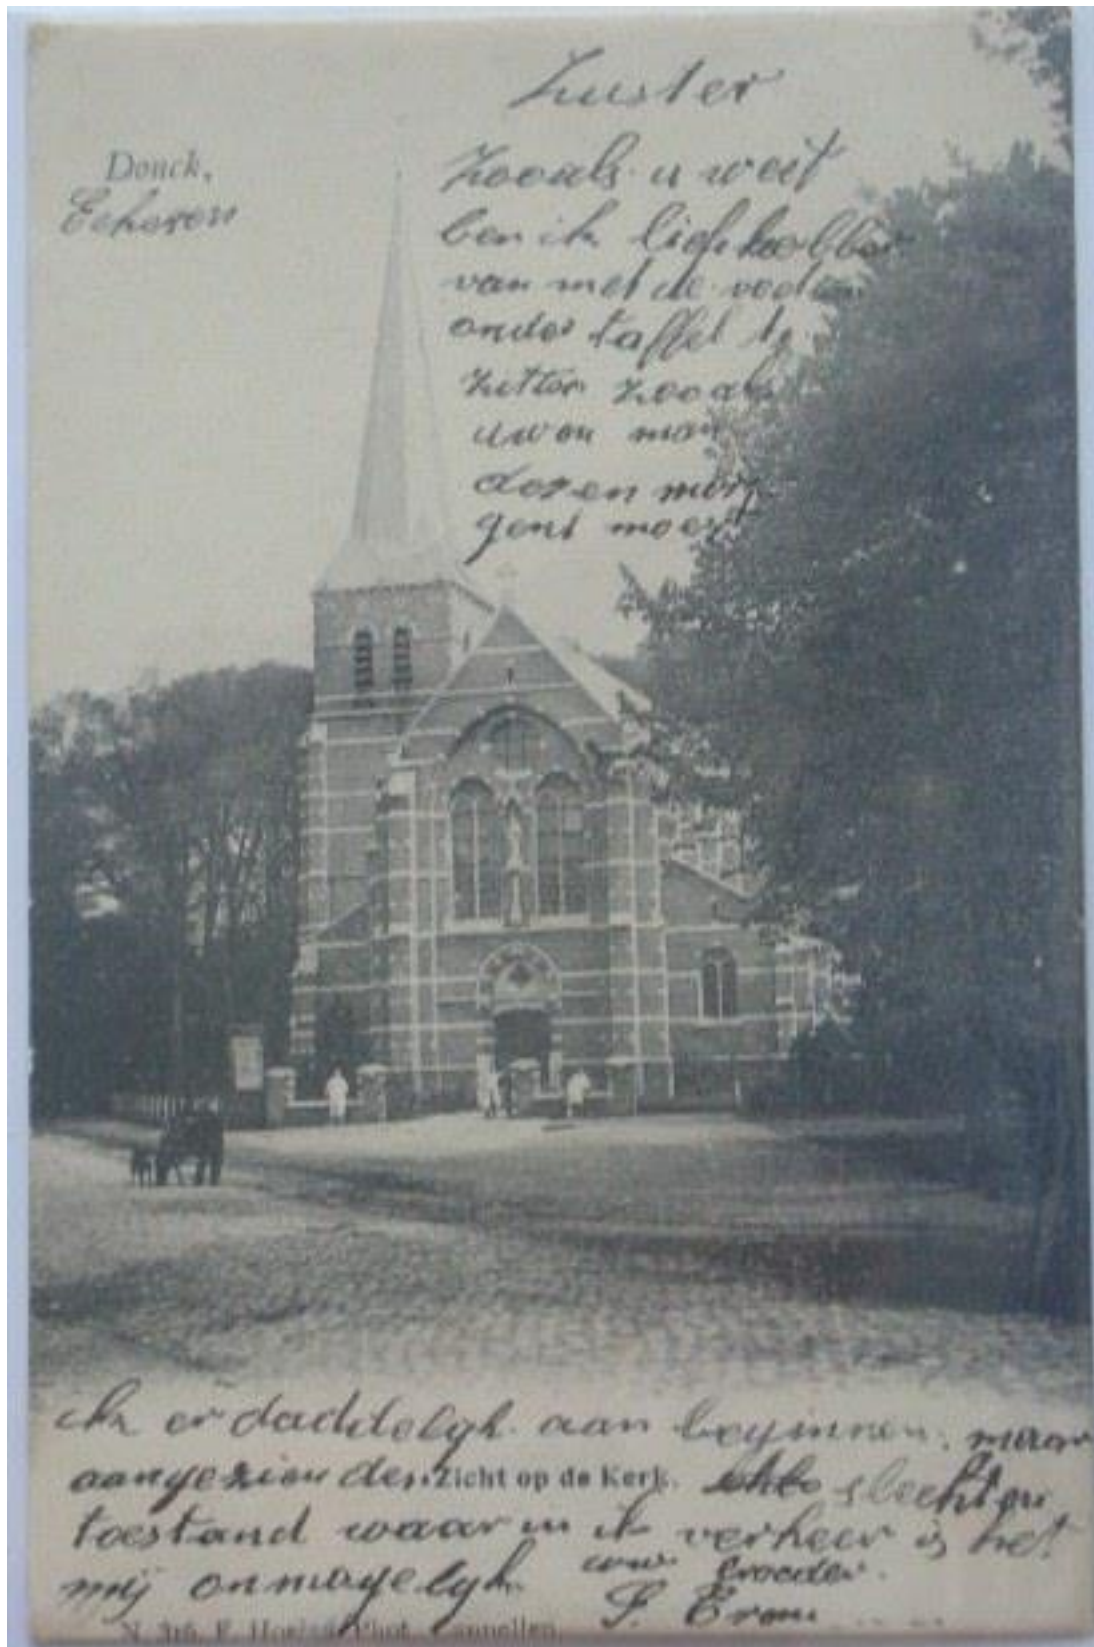 Zuster
Donck,
Eekeren
Zooals u weet
ben ik liefhebber
van met de
onder taffel te
zitten zooals
uwen man
dezen mor
gent moest
ik er daddelyk aan beginnen, maar
aangezien den slechten
Zicht op de Kerk.
toestand waar in ik verkeer is het
mij onmogelyk
uw broeder.
N. 316. F. Phot. Cappellen.